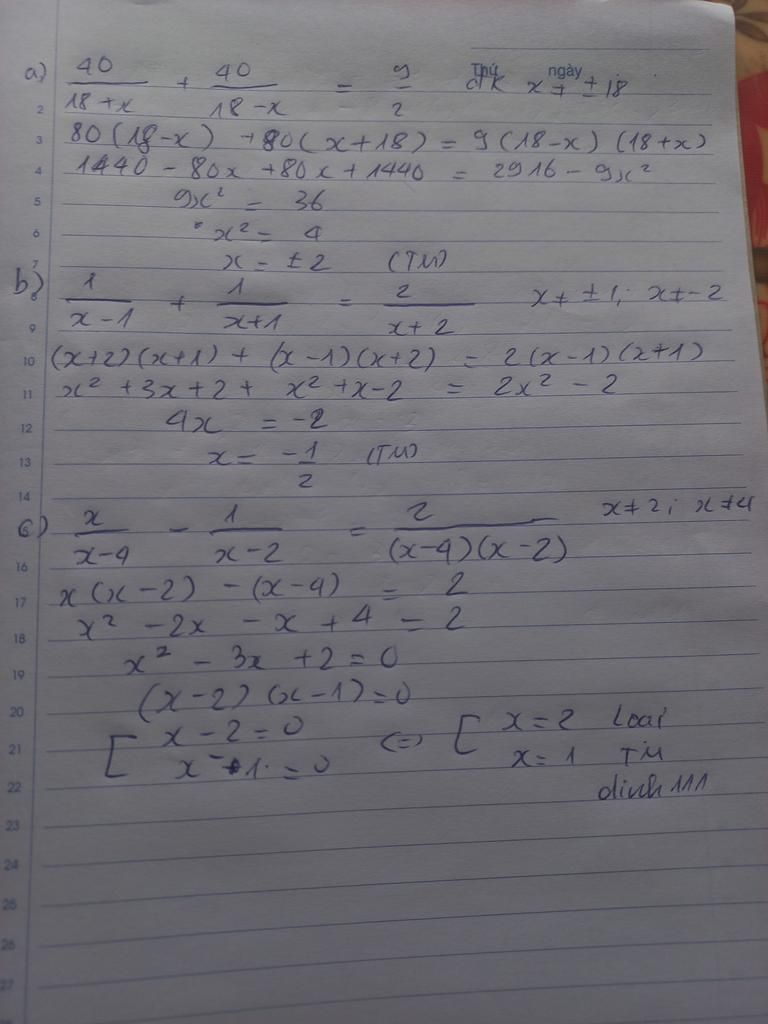 Thứ ngày
a) 40/(18+x) + 40/(18-x) = 9/2 đk x ≠ ±18
2
3 80(18-x) +80(x+18) = 9(18-x) (18+x)
4 1440 - 80x +80x + 1440 = 2916 - 9x²
5 9x² = 36
6 x² = 4
7 x = ±2 (TM)
b) 8 1/(x-1) + 1/(x+1) = 2/(x+2) x ≠ ±1; x ≠ -2
9
10 (x+2)(x+1) + (x-1)(x+2) = 2(x-1)(x+1)
11 x² +3x+2+ x²+x-2 = 2x² - 2
12 4x = -2
13 x = -1/2 (TM)
14
c) x/(x-4) - 1/(x-2) = 2/((x-4)(x-2)) x ≠ 2; x ≠ 4
16
17 x(x-2) - (x-4) = 2
18 x² - 2x - x + 4 = 2
19 x² - 3x + 2 = 0
20 (x-2)(x-1)=0
21 [ x - 2 = 0 <=> [ x = 2 loại
x - 1 = 0 x = 1 TM
22 dinh111
23
24
25
26
27